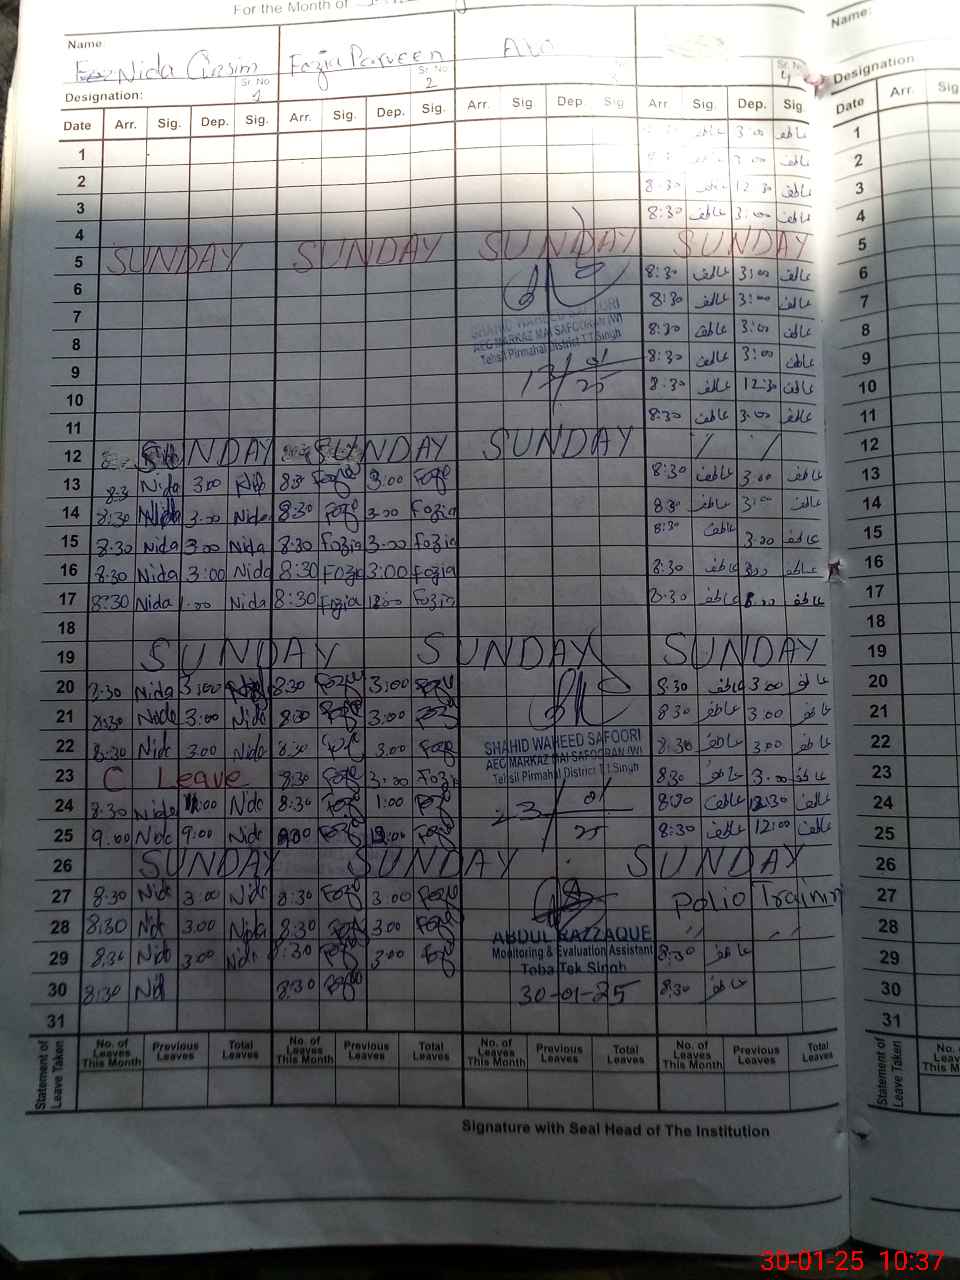 For the Month of
Name Nida Qasim Fozia Parveen Name:
Designation: Sr. No 1 Sr. No 2 Sr. No 4 Designation
Date Arr. Sig. Dep. Sig. Arr. Sig. Dep. Sig. Arr. Sig Dep. Sig. Arr Sig. Dep. Sig. Date Arr. Sig
1 3:00 عاطف 1
2 3:00 عاطف 2
3 8:30 عاطف 12:30 عاطف 3
4 8:30 عاطف 3:00 عاطف 4
5 SUNDAY SUNDAY SUNDAY SUNDAY 5
6 8:30 عاطف 3:00 عاطف 6
7 8:30 عاطف 3:00 عاطف 7
SHAHID WAHEED SAFOORI
8 8:30 عاطف 3:00 عاطف 8
AEO MARKAZ MAI SAFOORAN (W)
Tehsil Pirmahal District T.T.Singh
9 8:30 عاطف 3:00 عاطف 9
13/01/25
10 8:30 عاطف 12:30 عاطف 10
11 8:30 عاطف 3:00 عاطف 11
12 SUNDAY SUNDAY SUNDAY 12
13 8:30 Nida 3:00 Nida 8:30 Fozia 3:00 Fozia 8:30 عاطف 3:00 عاطف 13
14 8:30 Nida 3:00 Nida 8:30 Fozia 3:00 Fozia 8:30 عاطف 3:00 عاطف 14
15 8:30 Nida 3:00 Nida 8:30 Fozia 3:00 Fozia 8:30 عاطف 3:00 عاطف 15
16 8:30 Nida 3:00 Nida 8:30 Fozia 3:00 Fozia 8:30 عاطف عاطف 16
17 8:30 Nida 1:00 Nida 8:30 Fozia Fozia 8:30 عاطف عاطف 17
18 18
19 SUNDAY SUNDAY SUNDAY 19
20 8:30 Nida 3:00 8:30 Fozia 3:00 Fozia 8:30 عاطف 3:00 عاطف 20
21 8:30 Nida 3:00 Nida 8:30 Fozia 3:00 Fozia 8:30 عاطف 3:00 عاطف 21
22 8:30 Nida 3:00 Nida 8:30 3:00 Fozia 8:30 عاطف 3:00 عاطف 22
SHAHID WAHEED SAFOORI
AEO MARKAZ MAI SAFOORAN (W)
Tehsil Pirmahal District T.T.Singh
23 C Leave 8:30 Fozia 3:00 Fozia 8:30 عاطف 3:00 عاطف 23
24 8:30 Nida 1:00 Nida 8:30 Fozia 1:00 Fozia 8:30 عاطف 12:30 عاطف 24
23/01/25
25 9:00 Nida 9:00 Nida Fozia Fozia 8:30 عاطف 12:00 عاطف 25
26 SUNDAY SUNDAY SUNDAY 26
27 8:30 Nida 3:00 Nida 8:30 Fozia 3:00 Fozia Polio Training 27
28 8:30 Nida 3:00 Nida 8:30 Fozia 3:00 Fozia " " 28
ABDUL RAZZAQUE
Monitoring & Evaluation Assistant
Toba Tek Singh
29 8:30 Nida 3:00 Nida 8:30 Fozia 3:00 Fozia 8:30 عاطف 29
30 8:30 Nid 8:30 Fozia 30-01-25 8:30 عاطف 30
31 31
Statement of Leave Taken No. of Leaves This Month Previous Leaves Total Leaves No. of Leaves This Month Previous Leaves Total Leaves No. of Leaves This Month Previous Leaves Total Leaves No. of Leaves This Month Previous Leaves Total Leaves Statement of Leave Taken
Signature with Seal Head of The Institution
30-01-25 10:37